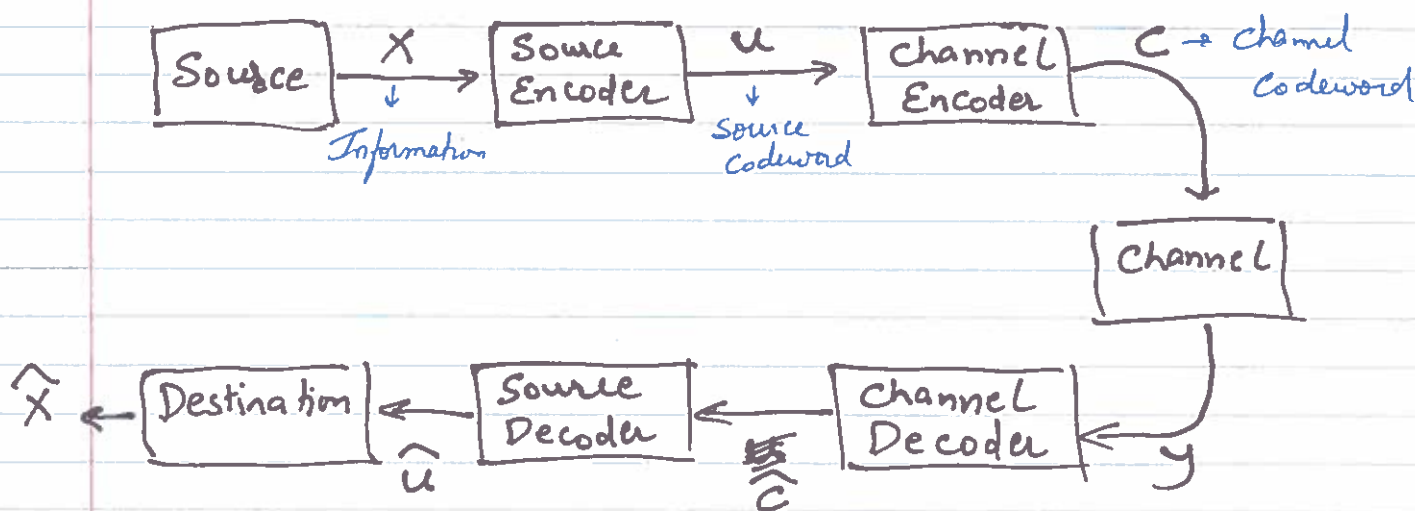 Source
X
↓
Information
Source
Encoder
u
↓
Source
Codeword
Channel
Encoder
C → Channel
Codeword
Channel
y
Channel
Decoder
ĉ
Source
Decoder
û
Destination
X̂